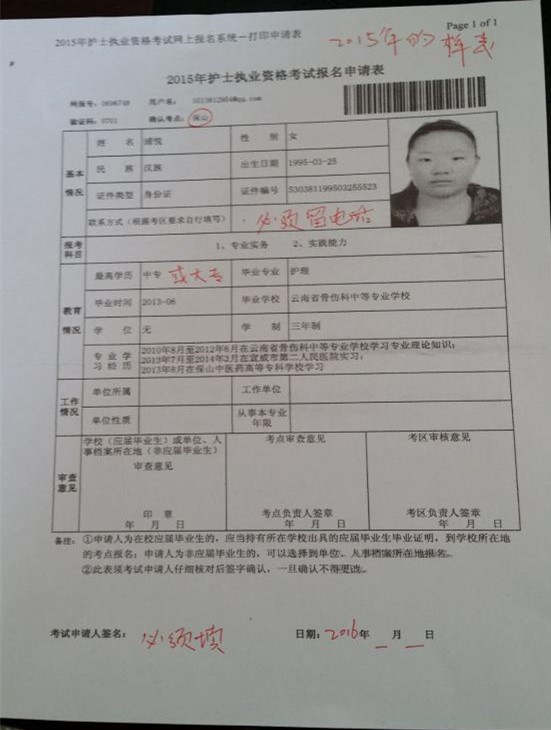 2015年护士执业资格考试网上报名系统－打印申请表
Page 1 of 1
2015年的样表
2015年护士执业资格考试报名申请表
网报号: 0696748 用户名:
验证码: 0701 确认考点: 保山
基本情况
姓 名
性 别 女
民 族 汉族 出生日期 1995-03-25
证件类型 身份证 证件编号 530381199503255523
联系方式（根据考区要求自行填写） 必须留电话
报考科目 1、专业实务 2、实践能力
教育情况
最高学历 中专 或大专 毕业专业 护理
毕业时间 2013-06 毕业学校 云南省骨伤科中等专业学校
学 位 无 学 制 三年制
专业学习经历
2010年8月至2012年6月在云南省骨伤科中等专业学校学习专业理论知识；
2013年7月至2014年2月在宣威市第二人民医院实习；
2013年8月在保山中医药高等专科学校学习
工作情况
单位所属 工作单位
单位性质 从事本专业年限
审查意见
学校（应届毕业生）或单位、人事档案所在地（非应届毕业生）审查意见
考点审查意见 考区审核意见
印 章 考点负责人签章 考区负责人签章
年 月 日 年 月 日 年 月 日
备注: ①申请人为在校应届毕业生的，应当持有所在学校出具的应届毕业生毕业证明，到学校所在地
的考点报名；申请人为非应届毕业生的，可以选择到单位、人事档案所在地报名。
②此表须考试申请人仔细核对后签字确认，一旦确认不得更改。
考试申请人签名: 必须填 日期: 2016年 月 日